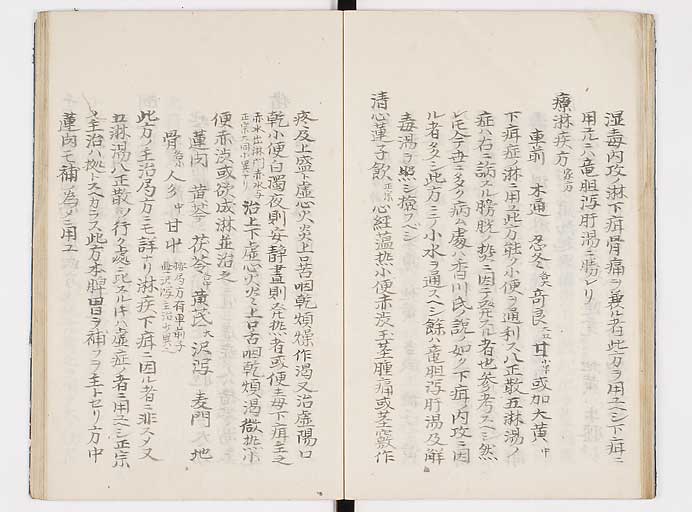 湿毒内攻ノ淋下疳骨痛ヲ兼ル者此方ヲ用ユヘシ下疳ニ
用ルニハ竜胆瀉肝湯ニ勝レリ
療淋疾方 家方
車前 木通 忍冬 各大 奇良 甘 小 或加大黄 中
下疳症淋ニ用ユ此方能ク小便ヲ通利ス八正散五淋湯ノ
症ハ右ニ謂フル膀胱ノ熱ニ因テ発スル者也参考スヘシ然
レ𪜈今世ニ多ク病ム處ハ香川氏ノ説ノ如ク下疳内攻ニ因
ル者多シ此方ニテ小水ヲ通スヘシ餘ハ竜胆瀉肝湯及解
毒湯ヲ照シ撿スベシ
清心蓮子飲 正宗 心経蘊熱小便赤渋玉茎腫痛或茎竅作
疼及上盛下虚心火炎上口苦咽乾煩燥作渇又治虚陽口
乾小便白濁夜則安静昼則発熱者或便毒下疳主之
治上下虚心火炎上口苦咽乾煩渇微熱小
便赤渋或欲成淋並治之
蓮肉 黄芩 茯苓 黄芪 大 沢瀉 麦門 大 地
骨 人参 中 甘 中
此方ノ主治局方ニモ詳ナリ淋疾下疳ニ因ル者ニ非ス又
五淋湯八正散ノ行ク処ニ比スルキハ虚症ノ者ニ用ユヘシ正宗
ノ主治ハ拠トスヘカラス此方本脾胃ヲ補フヲ主トセリ方中
蓮肉モ補ノ為メニ用ユ